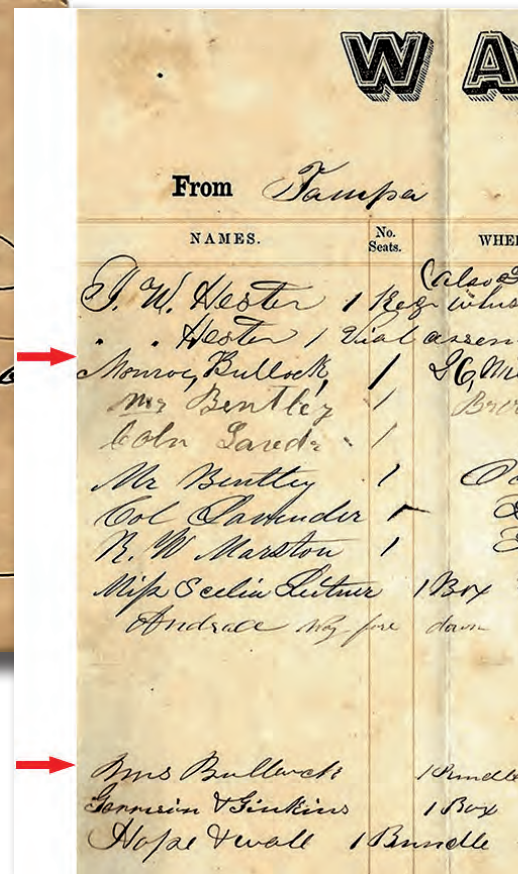 W A
From Tampa
NAMES. No. Seats. WHE
J. W. Hester 1 Keg
" " Hester 1 Vial
Monroe Bullock 1
Mr Bentley 1
Coln 1
Mr Bentley 1
Col Lavender 1
R. W Marston 1
Miss Scelia 1 Box
Andrade down
Mrs Bullock 1 Bundle
Garrison & Jinkins 1 Box
Hope & wall 1 Bundle